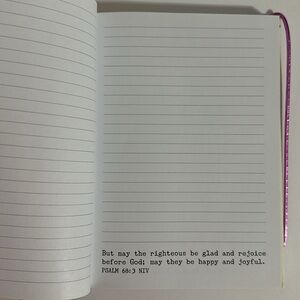 But may the righteous be glad and rejoice
before God; may they be happy and joyful.
PSALM 68:3 NIV